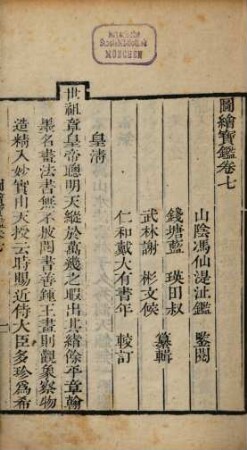 圖繪寶鑑卷七
山陰馮仙湜沚鑑 鑒閱
錢塘藍 瑛田叔
武林謝 彬文侯 纂輯
仁和戴大有書年 較訂
皇清
世祖章皇帝聰明天縱於萬幾之暇出其緒餘平章翰
墨名畫法書無不披閱書善鍾王畫則觀象察物
造精入妙實由天授云時賜近侍大臣多珍為希
MÜNCHEN